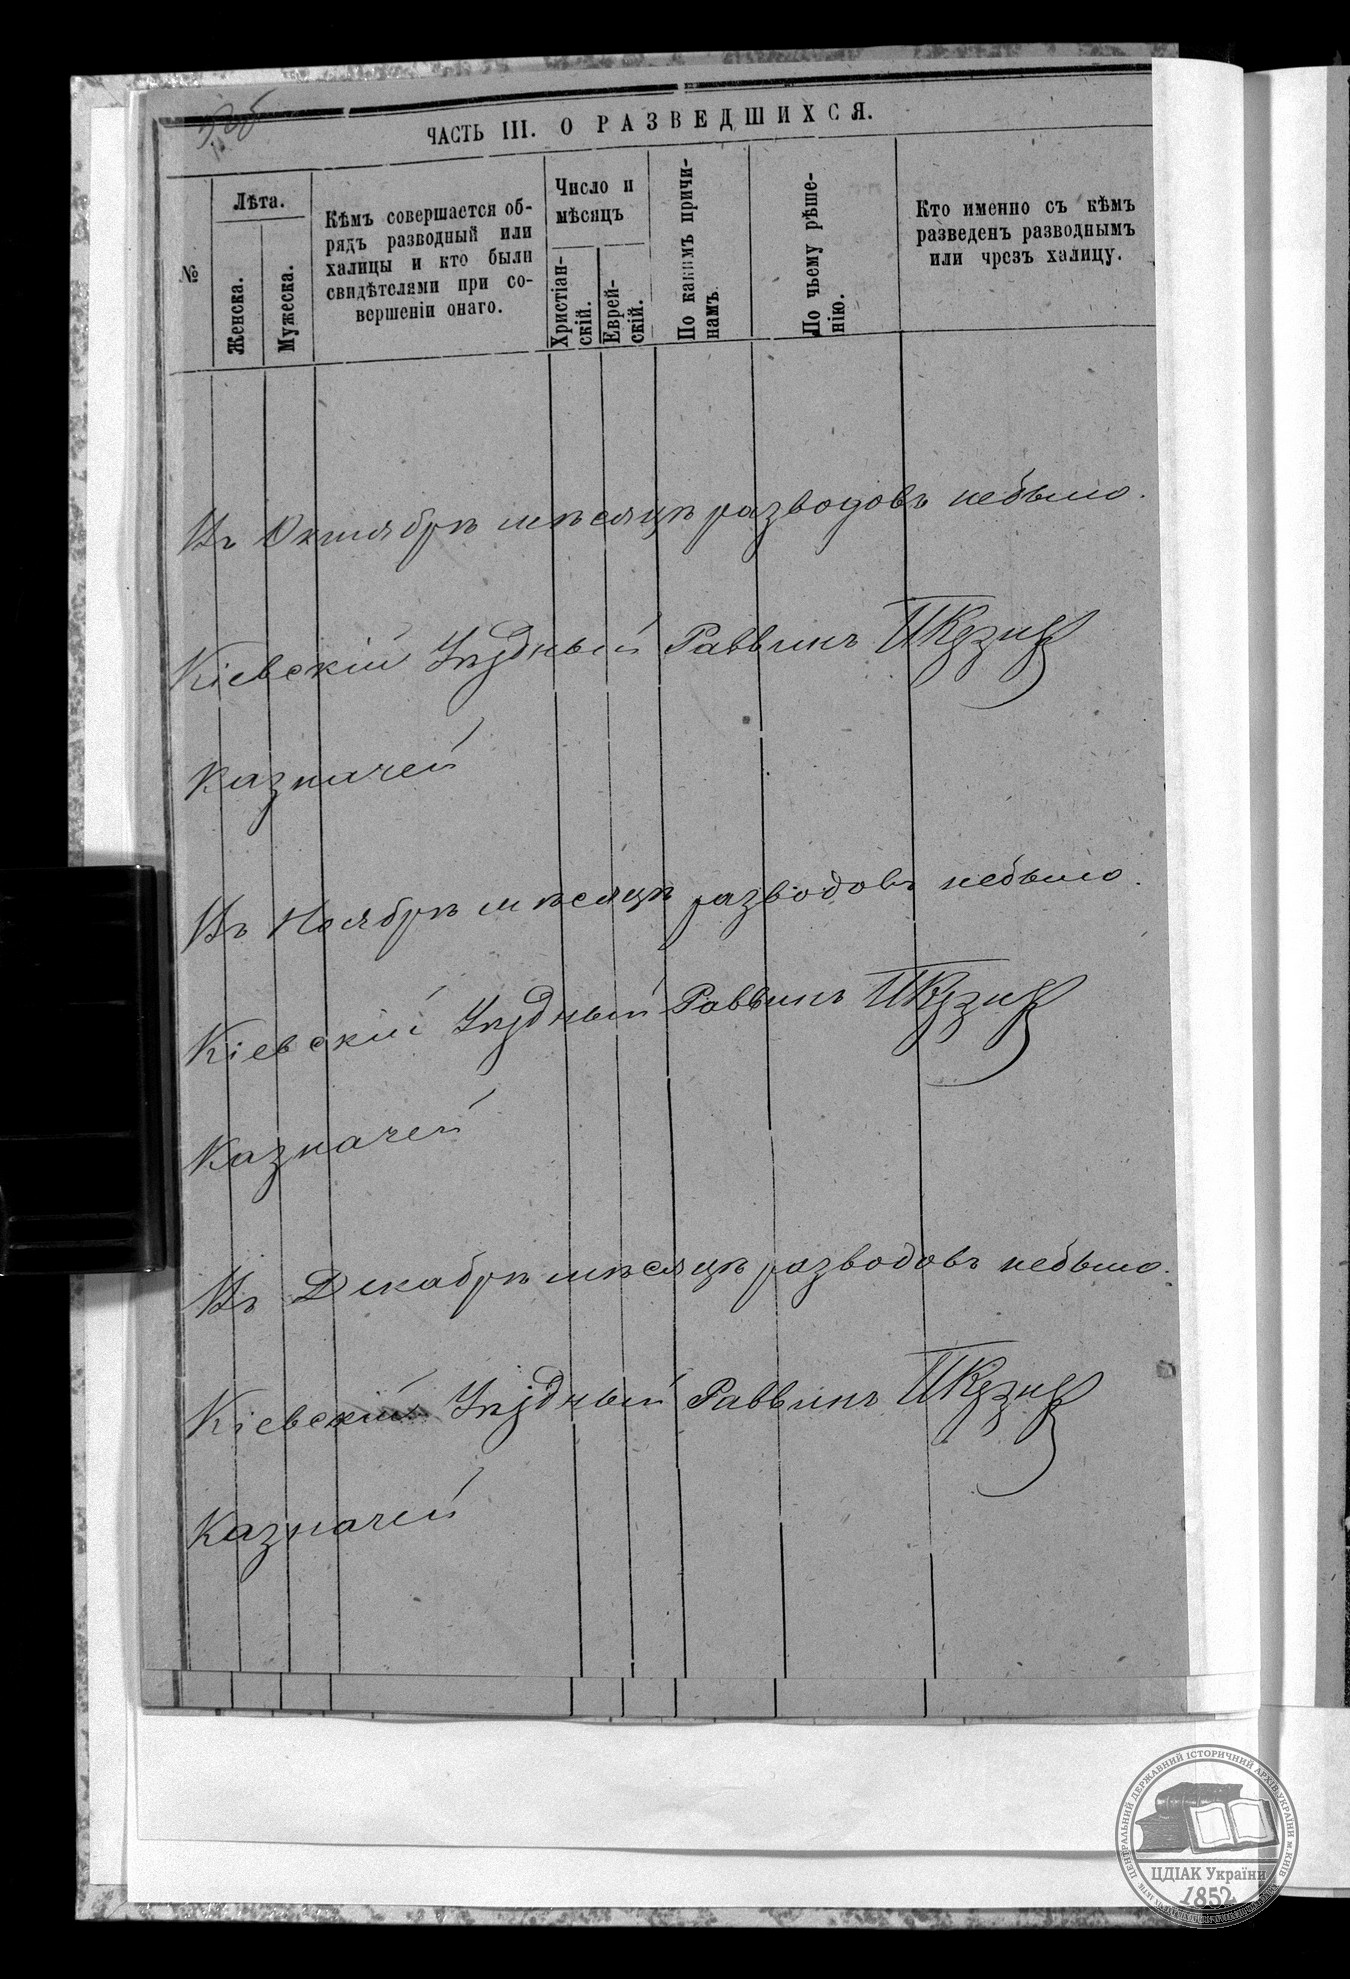 ЧАСТЬ III. О РАЗВЕДШИХСЯ.
№
Лѣта.
Женска.
Мужеска.
Кѣмъ совершается об-
рядъ разводный или
халицы и кто были
свидѣтелями при со-
вершеніи онаго.
Число и
мѣсяцъ
Христіан-
скій.
Еврей-
скій.
По какимъ причи-
намъ.
По чьему рѣше-
нію.
Кто именно съ кѣмъ
разведенъ разводнымъ
или чрезъ халицу.
Въ Октябрѣ мѣсяцѣ разводовъ небыло.
Кіевскій Уѣздный Раввинъ
Казначей
Въ Ноябрѣ мѣсяцѣ разводовъ небыло.
Кіевскій Уѣздный Раввинъ
Казначей
Въ Декабрѣ мѣсяцѣ разводовъ небыло.
Кіевскій Уѣздный Раввинъ
Казначей
ЦЕНТРАЛЬНИЙ ДЕРЖАВНИЙ ІСТОРИЧНИЙ АРХІВ УКРАЇНИ м. КИЇВ
ЦДІАК України
1852